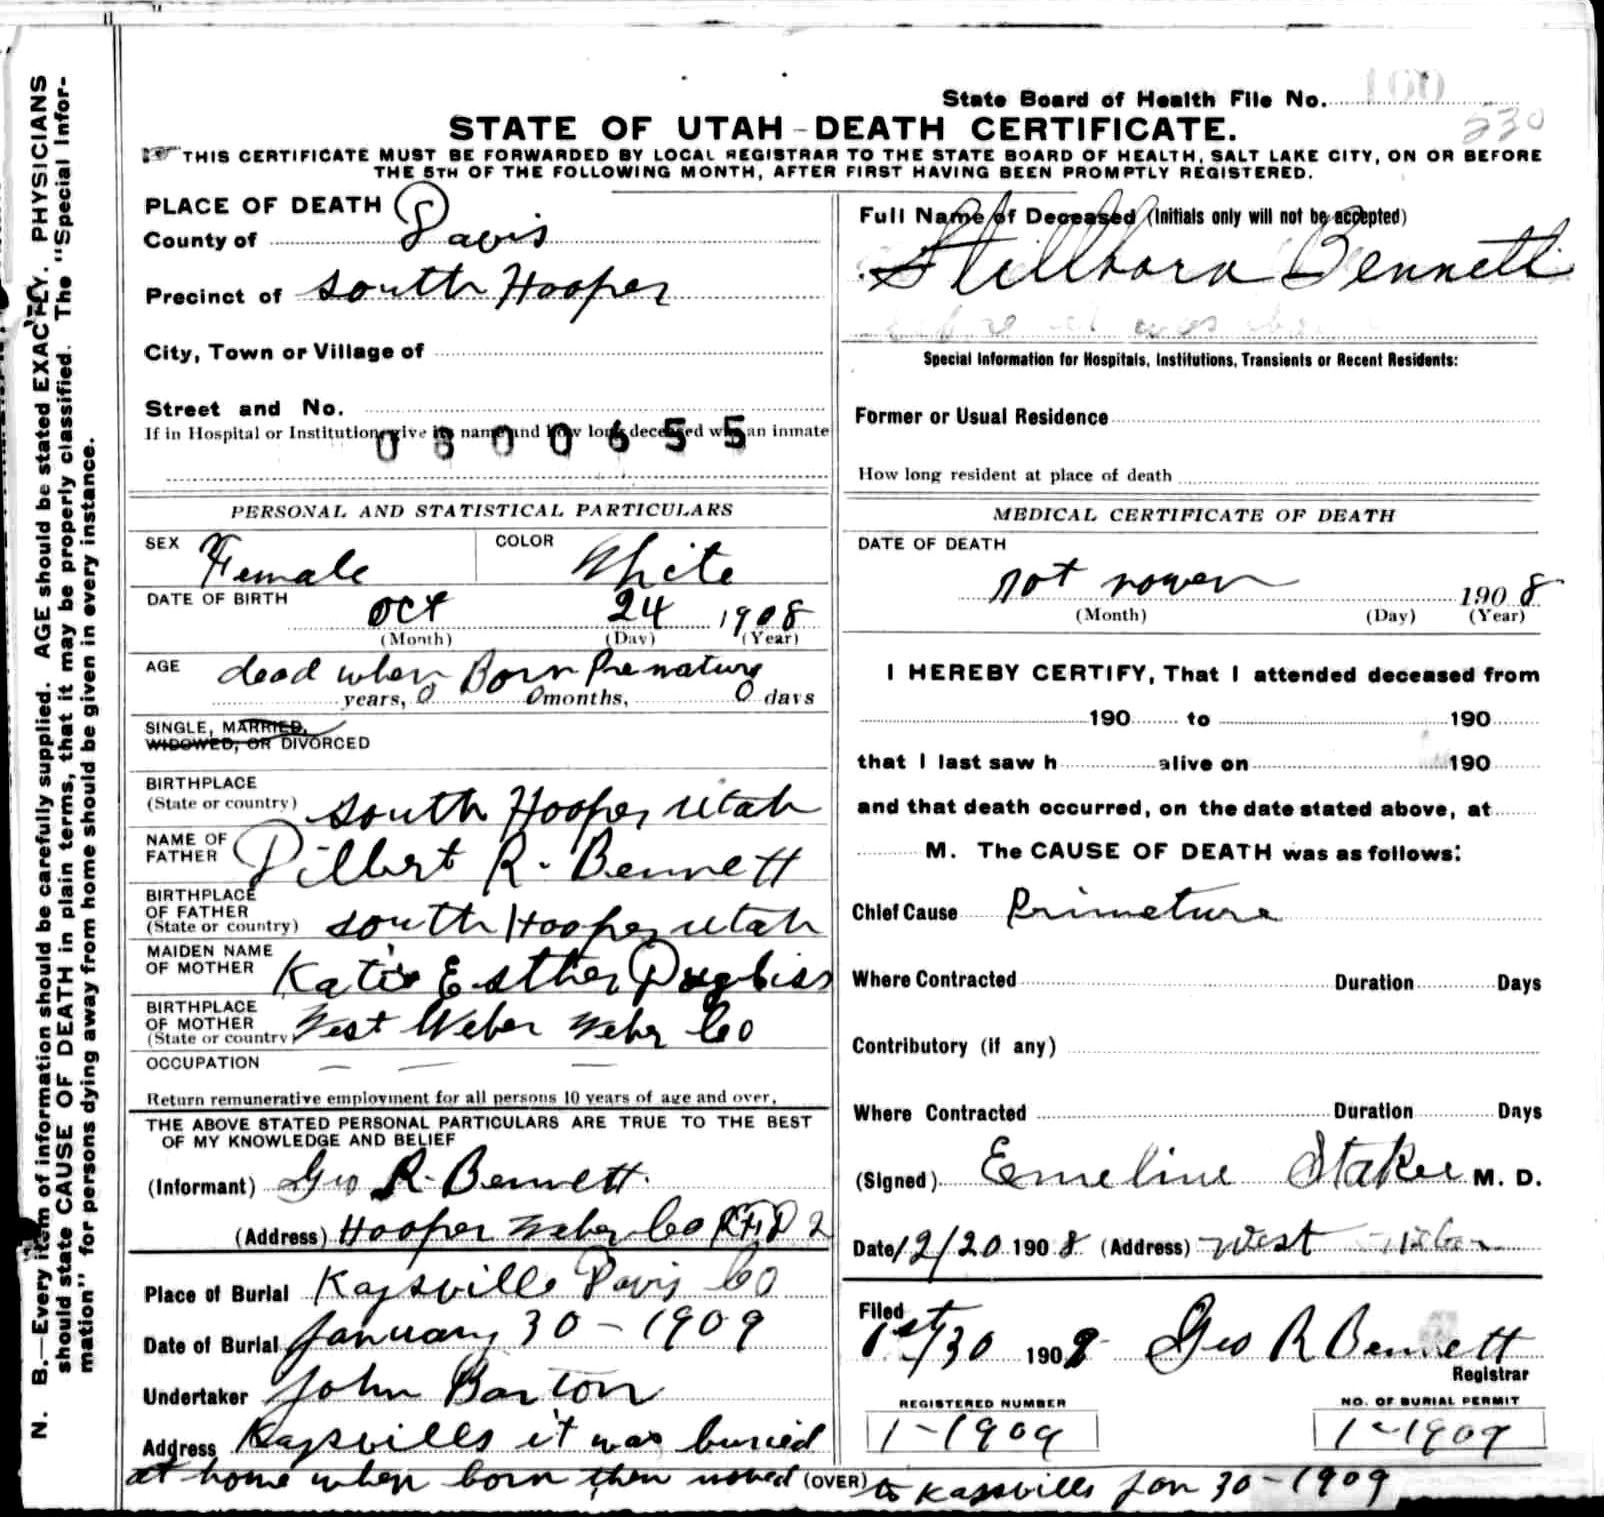 State Board of Health File No. 100
530
STATE OF UTAH-DEATH CERTIFICATE.
THIS CERTIFICATE MUST BE FORWARDED BY LOCAL REGISTRAR TO THE STATE BOARD OF HEALTH, SALT LAKE CITY, ON OR BEFORE
THE 5TH OF THE FOLLOWING MONTH, AFTER FIRST HAVING BEEN PROMPTLY REGISTERED.
N. B.—Every item of information should be carefully supplied. AGE should be stated EXACTLY. PHYSICIANS
should state CAUSE OF DEATH in plain terms, that it may be properly classified. The "Special Infor-
mation" for persons dying away from home should be given in every instance.
PLACE OF DEATH
County of Davis
Precinct of South Hooper
City, Town or Village of
Street and No.
If in Hospital or Institution, give its name and how long deceased was an inmate
0800655
PERSONAL AND STATISTICAL PARTICULARS
SEX Female COLOR White
DATE OF BIRTH Oct 24 1908
(Month) (Day) (Year)
AGE dead when Born Premature
years, 0 0 months, 0 days
SINGLE, MARRIED,
WIDOWED, OR DIVORCED
BIRTHPLACE
(State or country) South Hooper Utah
NAME OF
FATHER Dilbert R. Bennett
BIRTHPLACE
OF FATHER
(State or country) South Hooper Utah
MAIDEN NAME
OF MOTHER Katie Esther
BIRTHPLACE
OF MOTHER
(State or country West Weber Weber Co
OCCUPATION — — —
Return remunerative employment for all persons 10 years of age and over.
THE ABOVE STATED PERSONAL PARTICULARS ARE TRUE TO THE BEST
OF MY KNOWLEDGE AND BELIEF
(Informant) Geo R. Bennett.
(Address) Hooper Weber Co RFD 2
Place of Burial Kaysville Davis Co
Date of Burial January 30 - 1909
Undertaker John Barton
Address Kaysville it was buried
at home when born then moved (OVER) to Kaysville Jan 30 - 1909
Full Name of Deceased (Initials only will not be accepted)
Stillborn Bennett
Special Information for Hospitals, Institutions, Transients or Recent Residents:
Former or Usual Residence
How long resident at place of death
MEDICAL CERTIFICATE OF DEATH
DATE OF DEATH
not 1908
(Month) (Day) (Year)
I HEREBY CERTIFY, That I attended deceased from
190 to 190
that I last saw h alive on 190
and that death occurred, on the date stated above, at
M. The CAUSE OF DEATH was as follows:
Chief Cause Primeture
Where Contracted Duration Days
Contributory (if any)
Where Contracted Duration Days
(Signed) Emeline Staker M. D.
Date 12/20 1908 (Address) West Weber
Filed 1st/30 1909 Geo R Bennett
Registrar
REGISTERED NUMBER
1-1909
NO. OF BURIAL PERMIT
1-1909